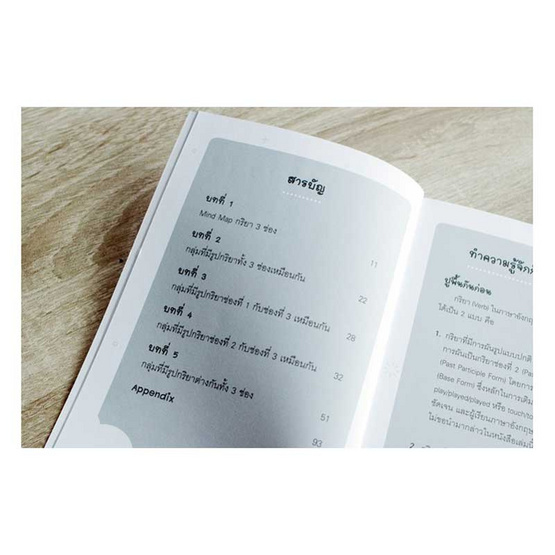 สารบัญ
บทที่ 1
Mind Map กริยา 3 ช่อง 11
บทที่ 2
กลุ่มที่มีรูปกริยาทั้ง 3 ช่องเหมือนกัน 22
บทที่ 3
กลุ่มที่มีรูปกริยาช่องที่ 1 กับช่องที่ 3 เหมือนกัน 28
บทที่ 4
กลุ่มที่มีรูปกริยาช่องที่ 2 กับช่องที่ 3 เหมือนกัน 32
บทที่ 5
กลุ่มที่มีรูปกริยาต่างกันทั้ง 3 ช่อง 51
Appendix 93
ทำความรู้จัก
ปูพื้นกันก่อน
กริยา (Verb) ในภาษาอังกฤษ
ได้เป็น 2 แบบ คือ
1. กริยาที่มีการผันรูปแบบปกติ
การผันเป็นกริยาช่องที่ 2 (Pas
(Past Participle Form) โดยการ
(Base Form) ซึ่งหลักในการเติม
play/played/played หรือ touch/to
ชัดเจน และผู้เรียนภาษาอังกฤษ
ไม่ขอนำมากล่าวในหนังสือเล่มนี้
2.